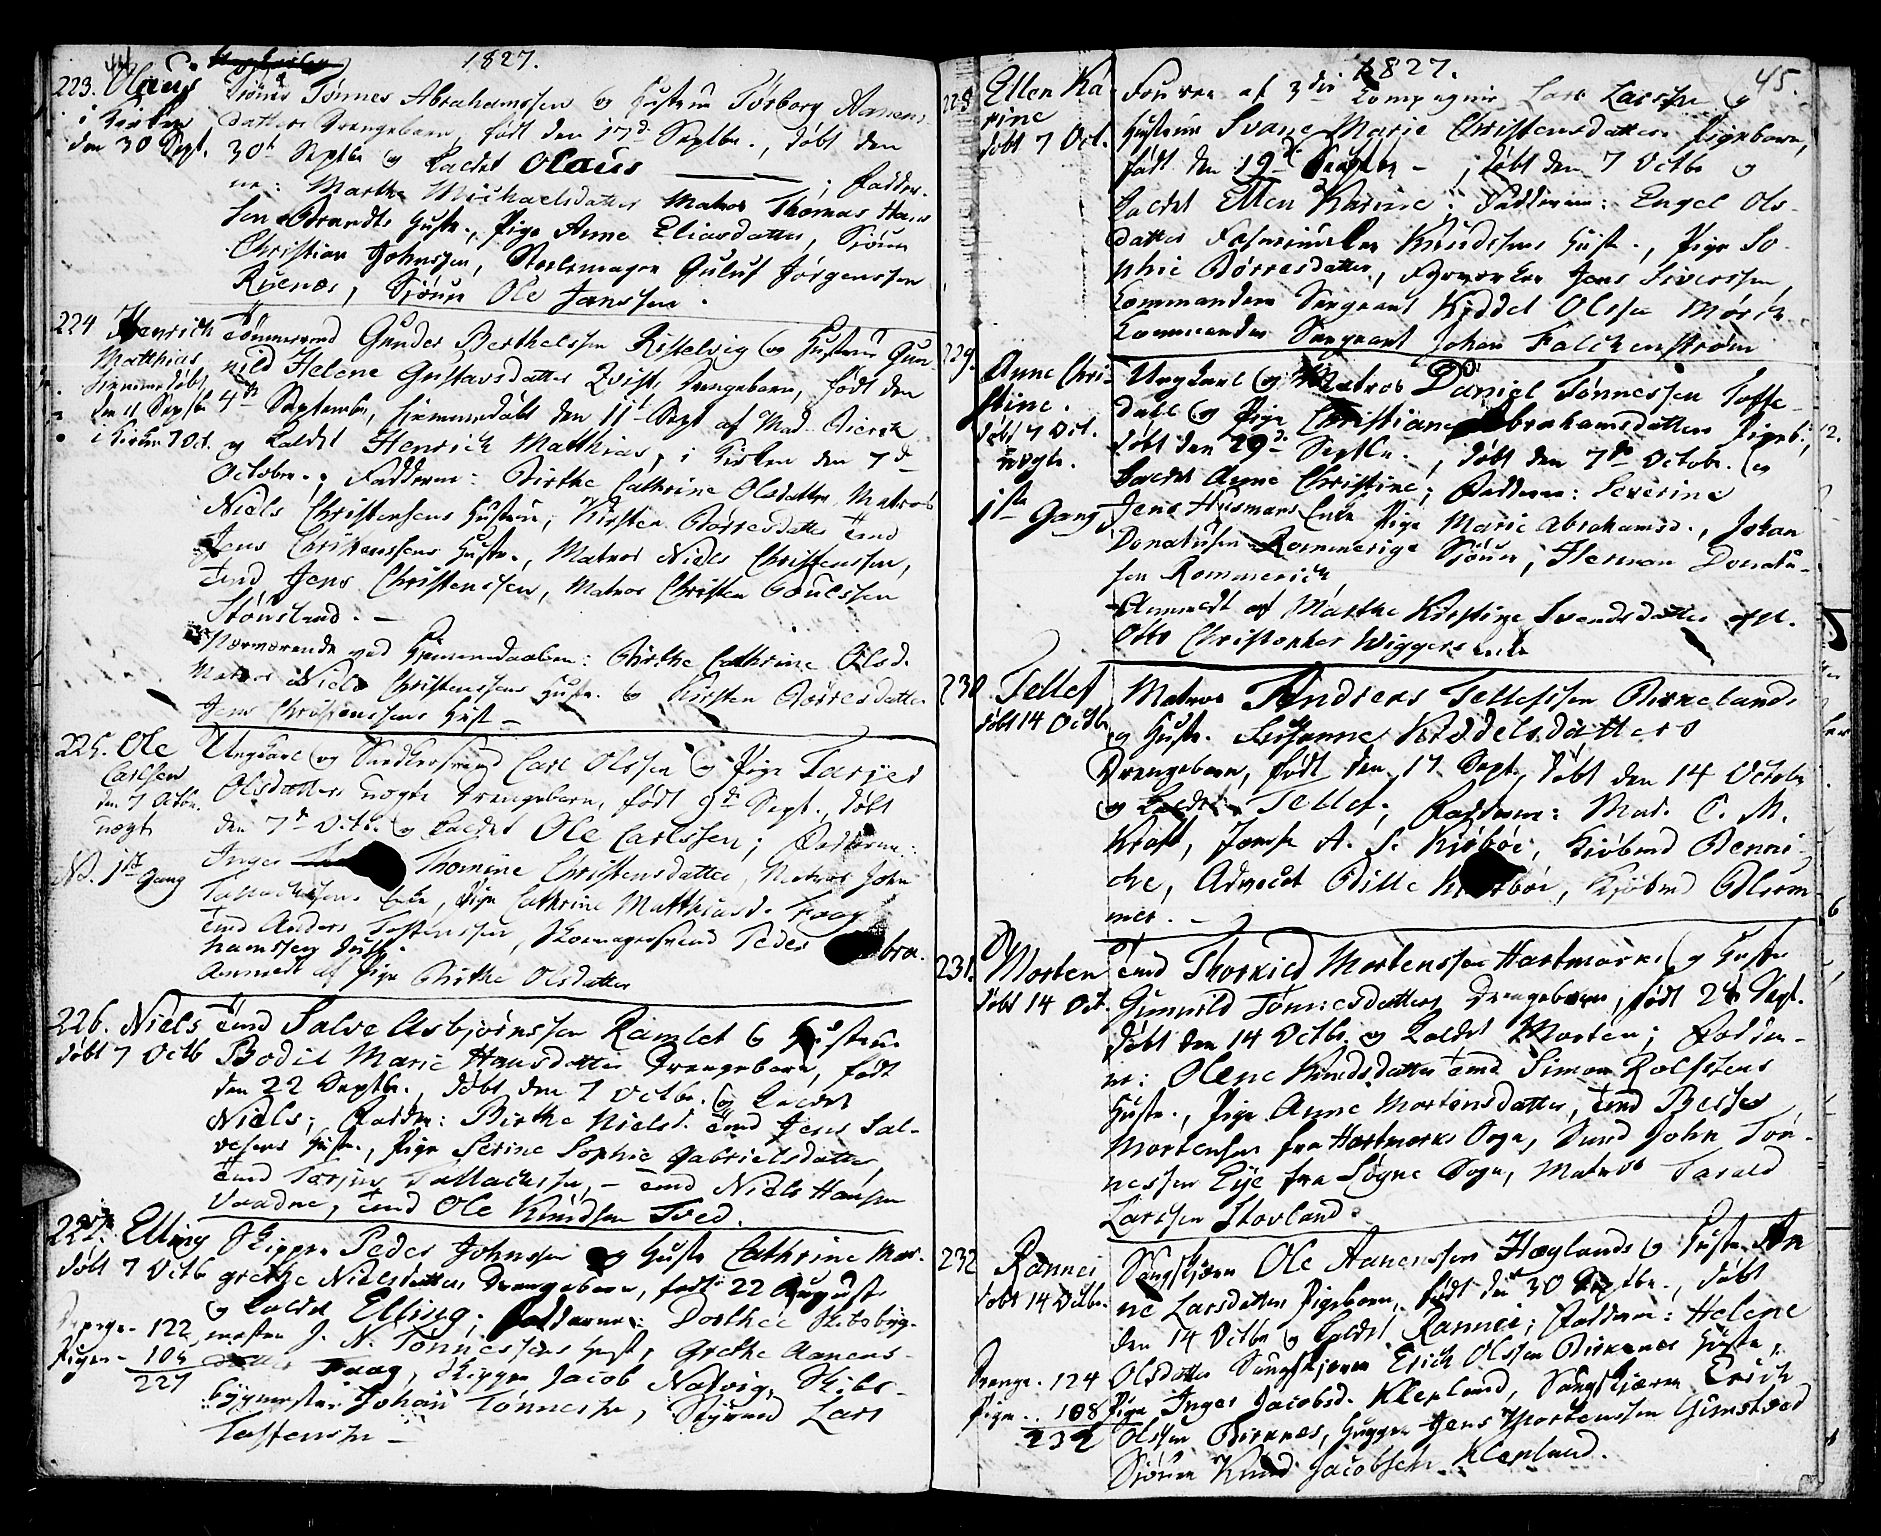 44
1827.
223. Olaus
i Kirken
den 30 Sept.
Tønnes Abrahamssen og Hustru Torborg Aanens
datters Drengebarn, født den 17de Septbr., døbt den
30te Septbr og kaldet Olaus ; Faddere
ne: Marthe Michaelsdatter Matros Thomas Han
sen Brandts Hustr., Pige Anne Eliasdatter, Sjöun
Christian Johnssen, Guluf Jörgenssen
Ryenæs, Sjöun Ole Jenssen.
224 Henrich
Matthias
hjemmedøbt
den 11 Septbr
i Kirken 7 Oct.
Tömmermd Gunder Berthelssen Kisselvig og Hustrue Gun
nild Helene Gustavsdatter Qvists Drengebarn, født den
4de September, hjemmedøbt den 11te Sept af Mad. Bierck
og kaldet Henrich Matthias, i Kirken den 7de
October.; Fadderne: Birthe Cathrine Olsdatter Matros
Niels Christensens Hustrue, Kirsten Börresdatter Tmd
Jens Christenssens Hustr., Matros Niels Christenssen,
Tmd Jens Christenssen, Matros Christen
Stönsland. —
Nærværende ved Hjemmedaaben: Birthe Cathrine Olsd.
Matros Niels Christenssens Hustr. og Kirsten Börresdatter
Jens Christenssens Hust —
225. Ole
Carlsen
den 7 Octbr.
uægte
No. 1ste Gang
Ungkarl og Carl Olssen og Pige Tarjer
Olsdatters uægte Drengebarn, født 9de Sept., døbt
den 7de Octb. og kaldet Ole Carlssen; Fadderne:
Inger Thomine Christensdatter, Matros John
Tallachsens Enke, Pige Cathrine Matthiasd. Faag
Tmd Anders Tostenssen, Skomagersvend Peder Abra-
hamssen
Ammedt af Pige Birthe Olsdatter
226. Niels
døbt 7 Octb
Tmd Salve Asbjørnssen Ramlet og Hustrue
Bodil Marie Hansdatter Drengebarn, født
den 22 Septbr., døbt den 7 Octbr. og kaldet
Niels; Faddr: Birthe Nielsd. Tmd Jens Sal-
vesens Hustr., Pige Serine Sophie Gabrielsdatter,
Tmd Torjus Tallachssen, — Tmd Niels Hansen
Vraadne, Tmd Ole Knudsen Tved.
227. Elling
døbt 7 Octb
Drenge - 122
Piger - 105
227
Skipper Peder Johnssen og Hustr Cathrine Mar-
grethe Nielsdatters Drengebarn, født 22 August
og kaldet Elling; Fadderne: Dorthee Skibsbyg-
mester J. N. Tönnessens Hust, Grethe Aanens-
datter Faag, Skipper Jacob Natvig, Skibs-
bygmester Johan Tönnessen, Styrmd Lars
Tostensen —
1827.
45.
228 Ellen Ka
rine
døbt 7 Oct.
Fourer af 3die Compagnie Lars Larssen og
Hustrue Svane Marie Christensdatters Pigebarn,
født den 19de Septbr — , døbt den 7 Octbr og
kaldet Ellen Karine; Fadderne: Engel Ols-
datter Knudsens Hust., Pige So-
phie Börresdatter, Jens Siverssen,
Commandeer Sergeant Kiddel Olssen Mörch
Commandeer Sergeant Johan Falckenström
229. Anne Chri-
stine.
døbt 7 Oct.
uægte.
1ste Gang
Ungkarl og Matros Daniel Tönnessen Tofte-
dahl og Pige Christiane Abrahamsdatters Pigeb.
født den 29de Septbr., døbt den 7de Octobr. og
kaldet Anne Christine; Fadderne: Severine
Jens Husmans Enke Pige Marie Abrahamsd., Johan
Donatusen Rommerige Sjöun, Herman Donatu-
sen Rommerich,
Ammedt af Marthe Kirstine Svendsdatter
Otto Christopher Wiggers Enke
230 Tellef
døbt 14 Octbr
Matros Andreas Tellefssen Birkelands
og Hustr. Susanne Kiddelsdatters
Drengebarn, født den 17 Sept, døbt den 14 Octobr
og kaldet Tellef; Fadderne: Mad. C. M.
Kraft, Jomfr A. S. Kirböe, Kiöbmd Benni-
che, Advocat Bille Kirböe, Kjöbmd Blom-
mer. —
231. Morten
døbt 14 Oct.
Tmd Thorkild Mortenssen Hartmarks og Hustr
Gunnild Tönnesdatters Drengebarn, født 24 Sept.
døbt den 14 Octbr. og kaldet Morten; Fadder-
ne: Olene Knudsdatter Tmd Simon Rolfssens
Hustr., Pige Anne Mortensdatter, Tmd Besse
Mortensen fra Hartmarks Sogn, Tmd John Tön-
nessen Eye fra Søgne Sogn, Matros Tarald
Larssen Stovland.
232 Rannei
døbt 14 Octbr.
Drenge. 124
Piger .. 108
232
Ole Aanenssen Høglands og Hustr. An
ne Larsdatters Pigebarn, født den 30 Septbr., døbt
den 14 Octbr og kaldet Rannei; Fadderne: Helene
Olsdatter Erich Olssen Birkenes Hustr.,
Pige Inger Jacobsd. Klepland, Erich
Olssen Birkenes, Jens Mortenssen Gimstved
Sjöun Knud Jacobsen Klepland.